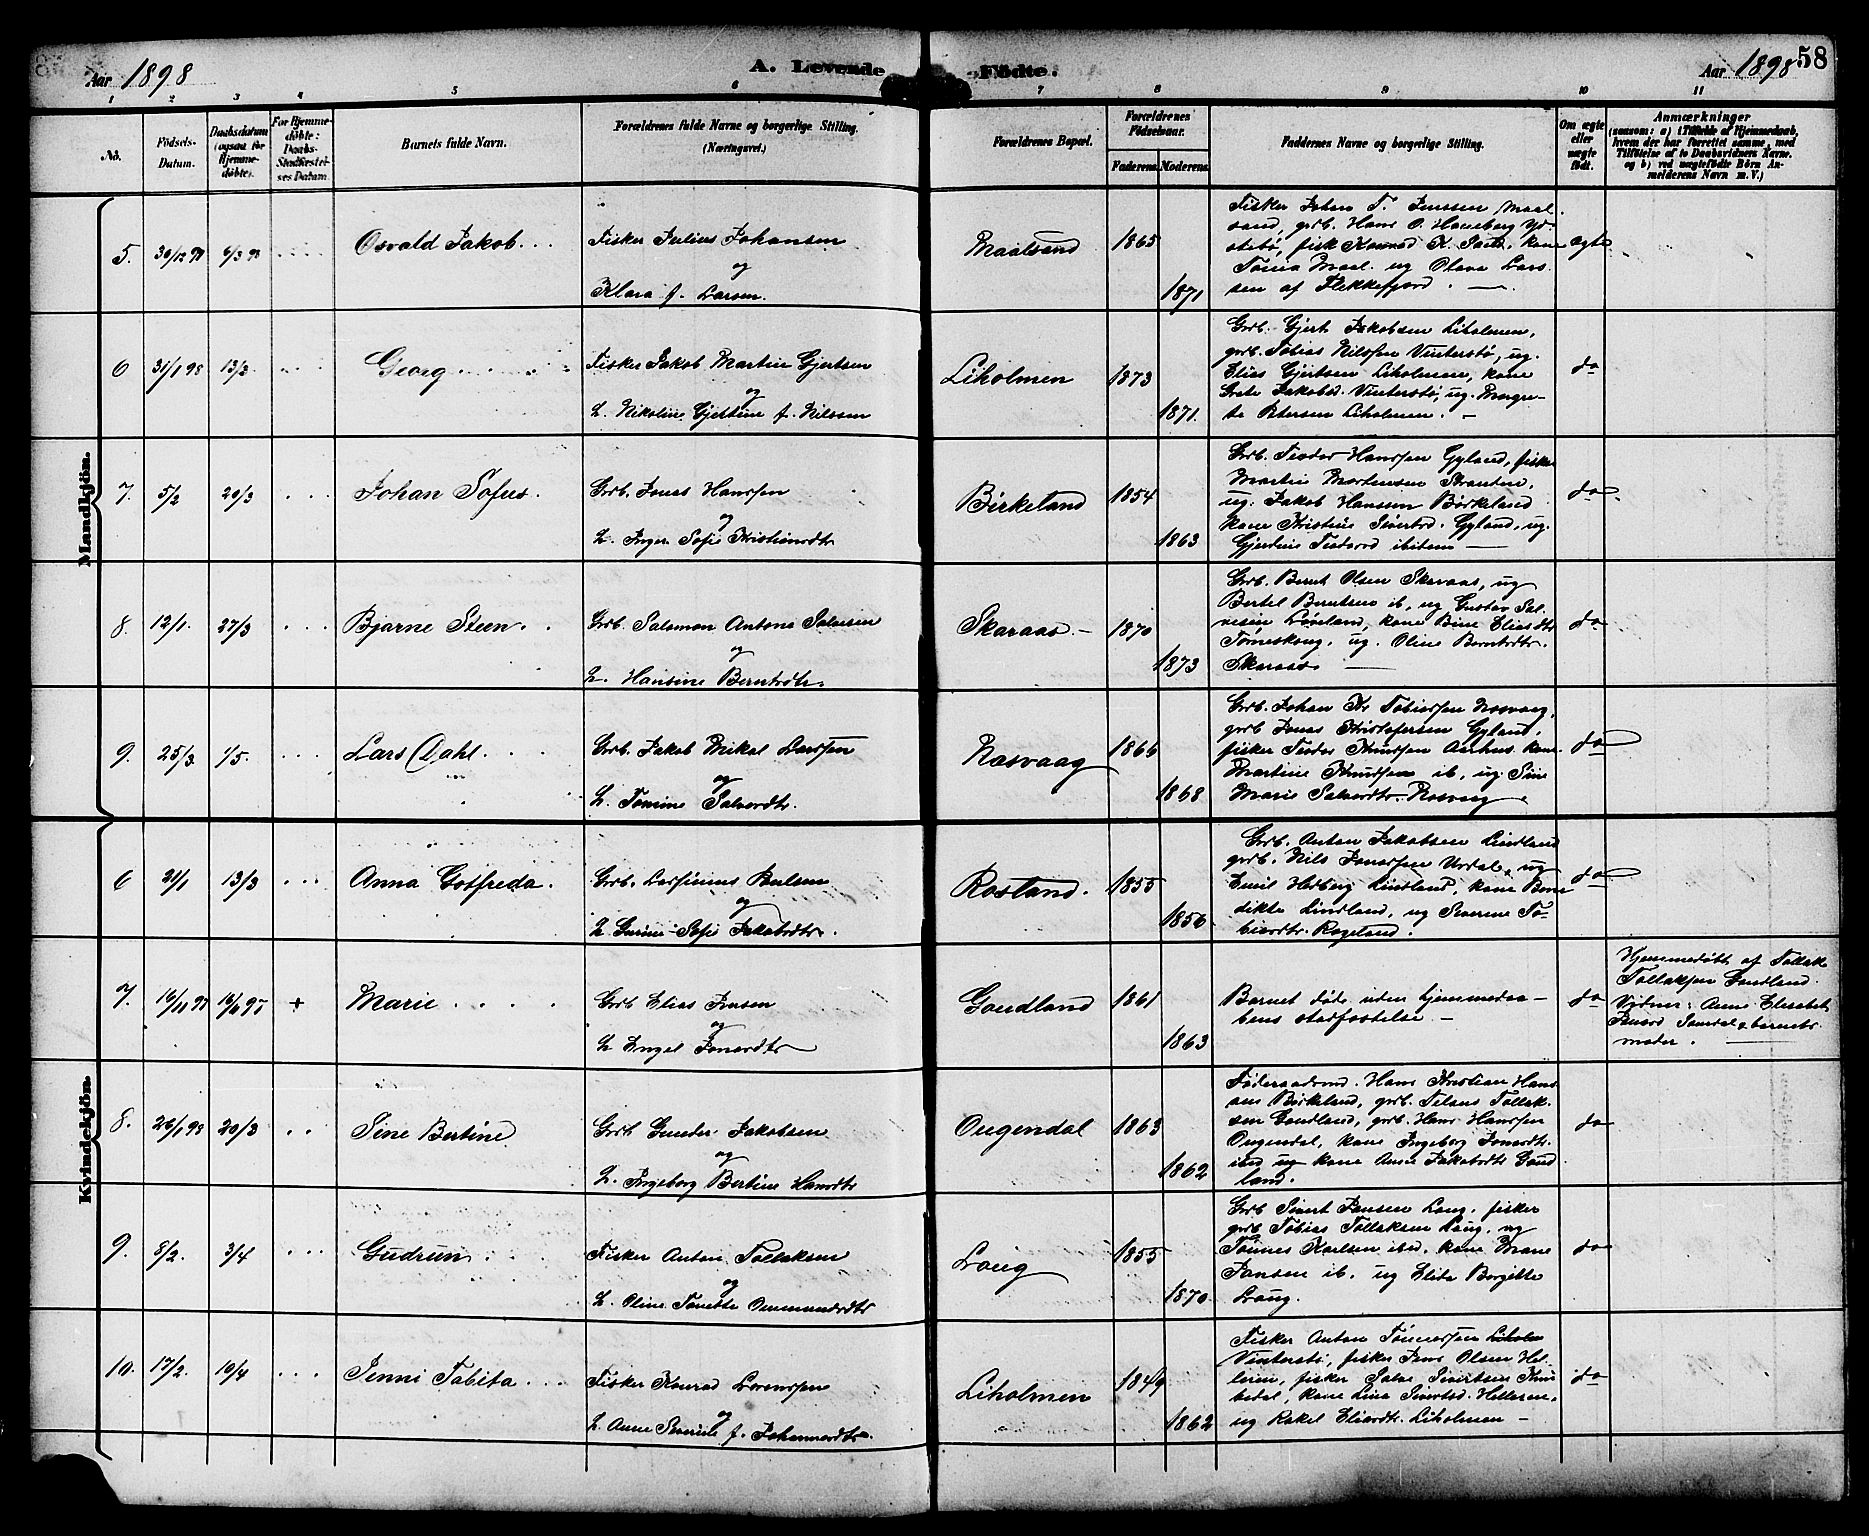 58
Aar 1898
A. Levende Födte.
Aar 1898
1 2 3 4 5 6 7 8 9 10 11
No.
Födsels-
Datum.
Daabsdatum
(ogsaa for
Hjemme-
döbte).
For Hjemme-
döbte:
Daabs-
Stadfæstel-
ses Datum.
Barnets fulde Navn.
Forældrenes fulde Navne og borgerlige Stilling.
(Næringsvei.)
Forældrenes Bopæl.
Forældrenes
Födselsaar.
Faderens.
Moderens.
Faddernes Navne og borgerlige Stilling.
Om ægte
eller
uægte
födt.
Anmærkninger
(saasom: a) i Tilfælde af Hjemmedaab,
hvem der har forrettet samme, med
Tilföielse af to Daabsvidners Navne.
og b) ved uægtefödte Börn An-
melderens Navn m. V.)
Mandkjön.
5. 30/12 97 6/3 98 Osvald Jakob
Fisker Julius Johansen
og
Klara f. Larsen.
Maalsund 1865
1871
Fisker Johan T. Jenssen, Maal-
sund, grb. Hans O. Haneberg Yd-
stebø, fisk Konrad K. kone
Tomia Maal. ug Olava Lars-
sen af Flekkefjord.
ægte
6 31/1 98 13/3 Georg
Fisker Jakob Martin Gjertsen
og
H. Nikoline Gjertine f. Nilssen
Liholmen 1873
1871.
Grb. Gjert Jakobsen Liholmen,
grb. Tobias Nilssen Vinterstø, ug.
Elias Gjertsen Liholmen, kone
Grete Jakobsd. Vinterstø, ug. Margre-
te Petersen Liholmen. -
do
7. 5/2 20/3 Johan Sofus.
Grb. Jonas Hanssen
og
H. Inger Sofie Kristiansdtr
Birkeland 1854
1863
Grb. Teodor Hanssen Gyland, fisker
Martin Mortensen Stranden,
ug. Jakob Hanssen Børkeland
kone Kristine Sivertsd. Gyland, ug.
Gjertine Teodorsd ibidem
do
8. 12/1. 27/3 Bjarne Steen.
Grb. Salomon Antons Salvesen
og
H. Hansine Berntsdtr.
Skaraas. 1870
1873
Grb. Bernt Olsen Skaraas, ug
Bertel Berntsen ib, ug Gustav Sal-
vesen Løveland, kone Bine Eliasdtr
Tømeskoug, ug. Oline Berntsdtr.
Skaraas.
do
9. 25/3 1/5. Lars Dahl.
Grb. Jakob Mikal Larssen
og
H. Tomine Salvesdtr.
Rosvaag 1866
1868
Grb. Johan Kr Tobiassen Rosvaag,
grb Jonas Kristofersen Gyland,
fisker Teodor Knudsen Aarhus. kone
Martine Knudsen ib, ug. Sine
Marie Salvesdtr. Rosvaag
do
Kvindekjön.
6 21/1 13/3 Anna Gotfreda.
Grb. Larsinius Paulsen
og
H Gurine Sofie Jakobsdtr.
Rostand. 1855
1856
Grb. Anton Jakobsen Lindland
grb. Nils Jonassen Urdal, ug
Emil Hedberg Lindland, kone Bene-
dikte Lindland, ug Severine To-
biasdtr. Rageland.
do
7. 16/11 97 16/11 97 + Marie
Grb Elias Jensen
og
H Engel Jonasdtr
Goudland 1861
1863
Barnet døde uden hjemmedaa-
bens stadfæstelse.
do
Hjemmedøbt af Tollak
Tollaksen Goudland.
Vidner: Anne Elisabeth
& barnets
moder.
8. 26/1 98 20/3 Sine Bertine
Grb Gunder Jakobsen
og
H. Ingeborg Bertine Hansdtr
Ougendal 1863
1862
Føderaadsmd. Hans Kristian Hans-
sen Birkeland, grb. Tollak-
sen Goudland, grb. Hans Hanssen
Ougendal, kone Ingeborg Jonasdtr.
ibid ug kone Anne Jakobsdtr Goud-
land.
do
9. 8/2. 3/4 Gudrun
Fisker Anton Tollaksen
og
H. Oline Tonette Ommundsdtr
Loug 1855
1870
Grb Sivert Jansen Loug. fisker
grb Tobias Tollaksen Loug, ug
Tønnes Karlsen ibid. kone Mane
Jansen ib. ug Elida Borgitte
Loug.
do
10. 17/2. 10/4 Jenni Tabita
Fisker Konrad Lorenssen
og
H. Anne f. Johannesdtr.
Liholmen 1849
1862
Fisker Anton Tønnessen
Vinterstø, fisker Jens Olsen Hel-
leren, fisker Sivertsen
kone Lina Sivertsd. Helleren,
ug Rakel Eliasdtr. Liholmen -
do